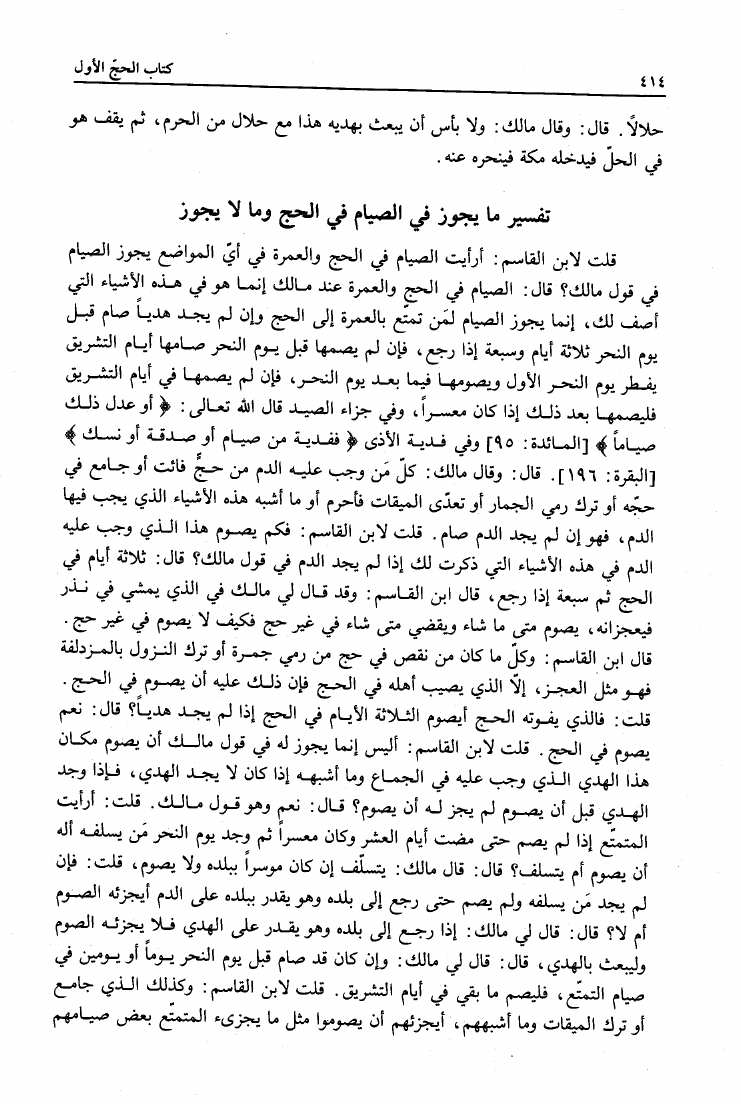 ٤١٤
كتاب الحجّ الأول
حلالاً. قال: وقال مالك: ولا بأس أن يبعث بهديه هذا مع حلال من الحرم، ثم يقف هو
في الحلّ فيدخله مكة فينحره عنه.
تفسير ما يجوز في الصيام في الحج وما لا يجوز
قلت لابن القاسم: أرأيت الصيام في الحج والعمرة في أيّ المواضع يجوز الصيام
في قول مالك؟ قال: الصيام في الحج والعمرة عند مالك إنما هو في هذه الأشياء التي
أصف لك، إنما يجوز الصيام لمَن تمتّع بالعمرة إلى الحج وإن لم يجد هدياً صام قبل
يوم النحر ثلاثة أيام وسبعة إذا رجع، فإن لم يصمها قبل يوم النحر صامها أيام التشريق
يفطر يوم النحر الأول ويصومها فيما بعد يوم النحر، فإن لم يصمها في أيام التشريق
فليصمها بعد ذلك إذا كان معسراً، وفي جزاء الصيد قال الله تعالى: ﴿ أو عدل ذلك
صياماً ﴾ [المائدة: ٩٥] وفي فدية الأذى ﴿ ففدية من صيام أو صدقة أو نسك ﴾
[البقرة: ١٩٦]. قال: وقال مالك: كلّ مَن وجب عليه الدم من حجٍّ فائت أو جامع في
حجّه أو ترك رمي الجمار أو تعدّى الميقات فأحرم أو ما أشبه هذه الأشياء الذي يجب فيها
الدم، فهو إن لم يجد الدم صام. قلت لابن القاسم: فكم يصوم هذا الذي وجب عليه
الدم في هذه الأشياء التي ذكرت لك إذا لم يجد الدم في قول مالك؟ قال: ثلاثة أيام في
الحج ثم سبعة إذا رجع، قال ابن القاسم: وقد قال لي مالك في الذي يمشي في نذر
فيعجزانه، يصوم متى ما شاء ويقضي متى شاء في غير حج فكيف لا يصوم في غير حج.
قال ابن القاسم: وكلّ ما كان من نقص في حج من رمي جمرة أو ترك النزول بالمزدلفة
فهو مثل العجز، إلّا الذي يصيب أهله في الحج فإن ذلك عليه أن يصوم في الحج.
قلت: فالذي يفوته الحج أيصوم الثلاثة الأيام في الحج إذا لم يجد هدياً؟ قال: نعم
يصوم في الحج. قلت لابن القاسم: أليس إنما يجوز له في قول مالك أن يصوم مكان
هذا الهدي الذي وجب عليه في الجماع وما أشبهه إذا كان لا يجد الهدي، فإذا وجد
الهدي قبل أن يصوم لم يجز له أن يصوم؟ قال: نعم وهو قول مالك. قلت: أرأيت
المتمتّع إذا لم يصم حتى مضت أيام العشر وكان معسراً ثم وجد يوم النحر مَن يسلفه أله
أن يصوم أم يتسلف؟ قال: قال مالك: يتسلّف إن كان موسراً ببلده ولا يصوم، قلت: فإن
لم يجد مَن يسلفه ولم يصم حتى رجع إلى بلده وهو يقدر ببلده على الدم أيجزئه الصوم
أم لا؟ قال: قال لي مالك: إذا رجع إلى بلده وهو يقدر على الهدي فلا يجزئه الصوم
وليبعث بالهدي، قال: قال لي مالك: وإن كان قد صام قبل يوم النحر يوماً أو يومين في
صيام التمتّع، فليصم ما بقي في أيام التشريق. قلت لابن القاسم: وكذلك الذي جامع
أو ترك الميقات وما أشبههم، أيجزئهم أن يصوموا مثل ما يجزىء المتمتّع بعض صيامهم